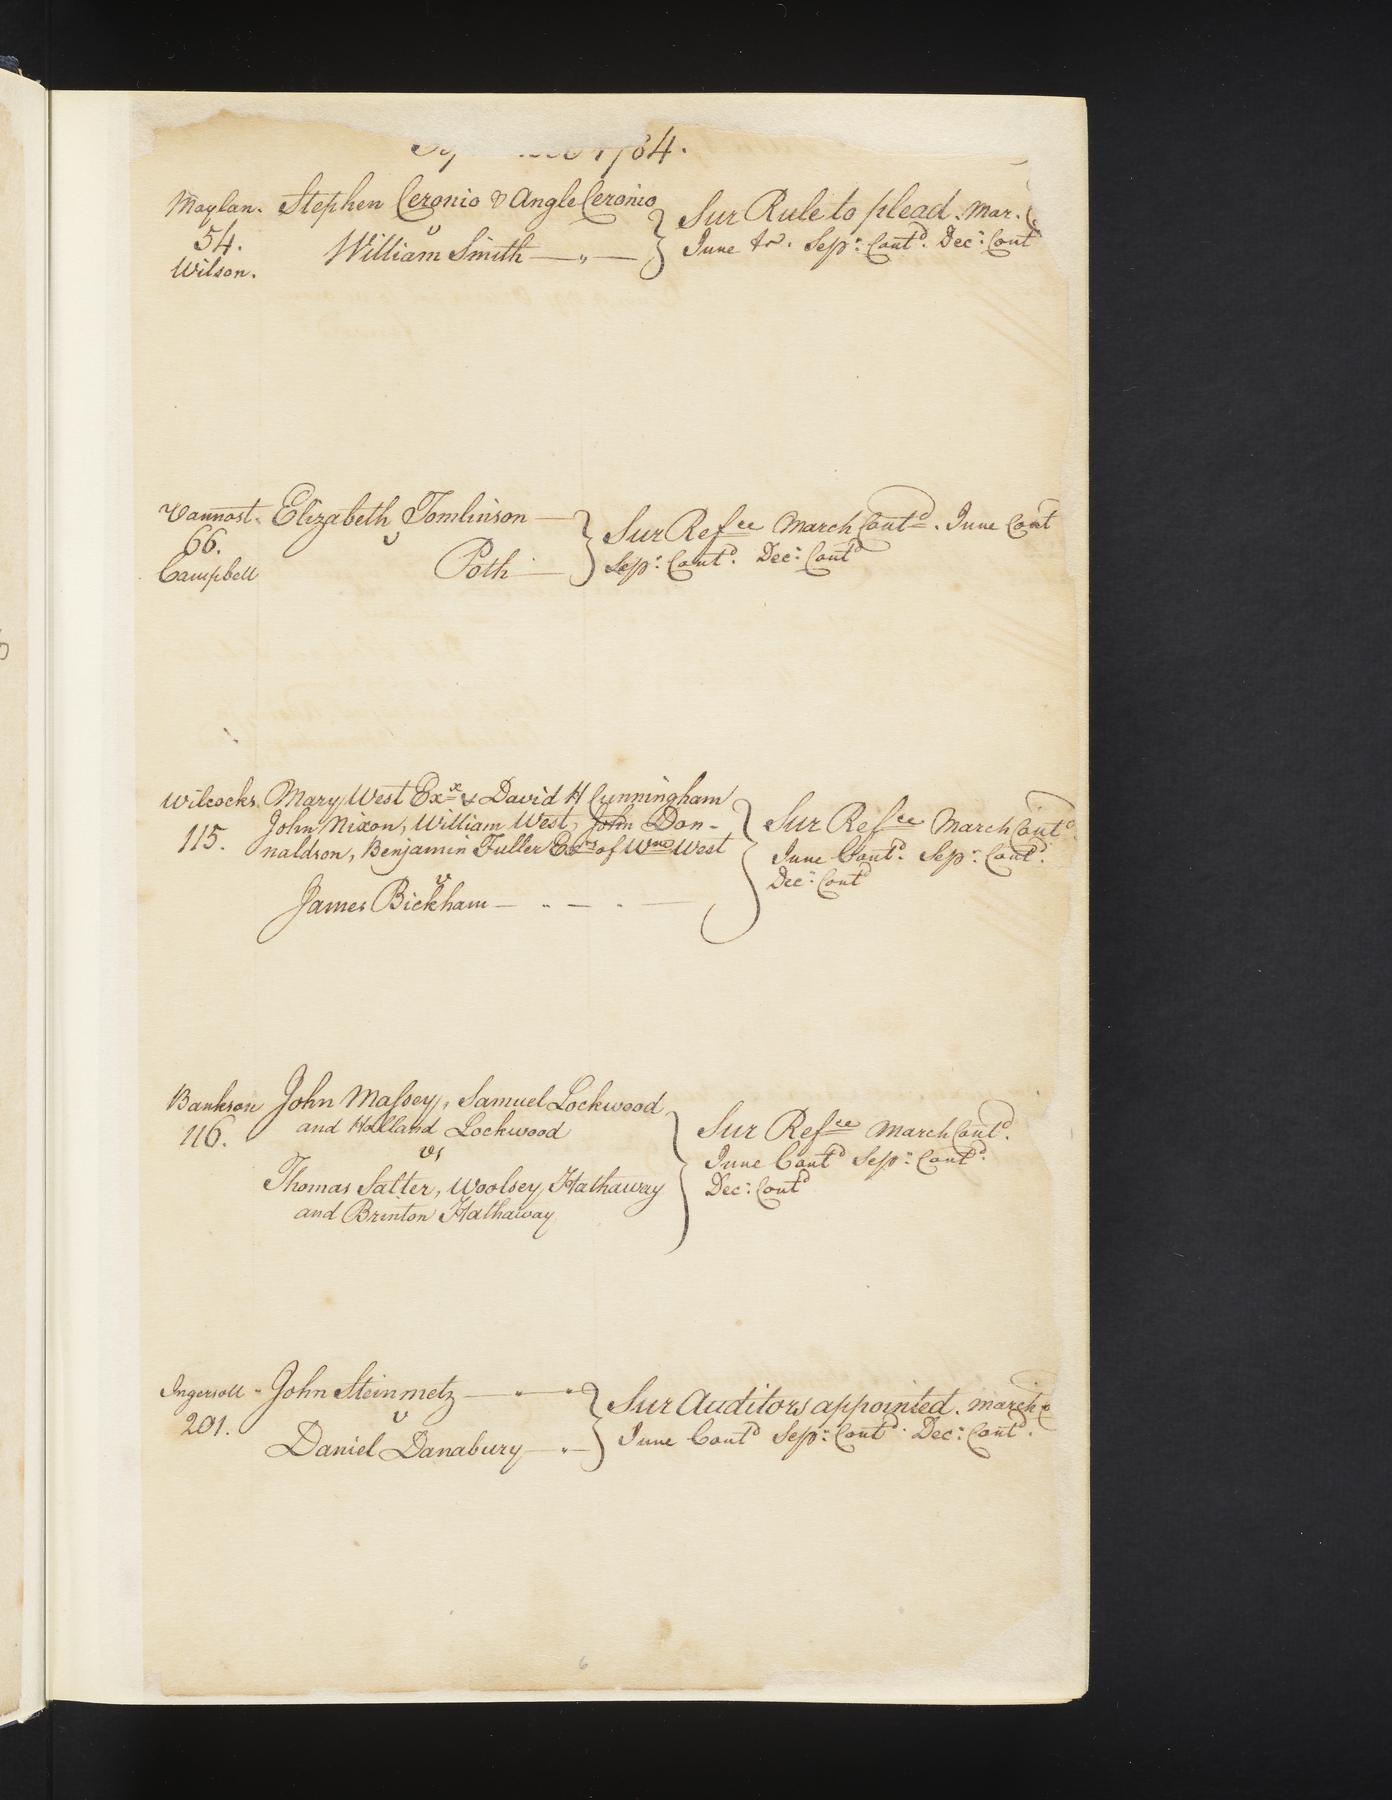 1784.
Moylan. Stephen Ceronio & Angle Ceronio
v
54. William Smith
Wilson.
Sur Rule to plead. Mar.
June Sepr: Contd. Decr: Cont
Vannost. Elizabeth Tomlinson
66. v
Campbell Poth
Sur Refce March Contd. June Cont
Sepr: Contd. Decr: Contd
Wilcocks Mary West Exx & David H Cunningham
115. John Nixon, William West, John Don-
naldson, Benjamin Fuller Exrs of Wm West
v
James Bickham
Sur Refce March Contd
June Contd. Sepr: Contd.
Decr: Contd
Bankson John Massey, Samuel Lockwood
116. and Holland Lockwood
vs
Thomas Salter, Woolsey Hathaway
and Brinton Hathaway
Sur Refce March Contd.
June Contd Sepr: Contd.
Decr: Contd
Ingersoll John Steinmetz
201. v
Daniel Danabury
Sur Auditors appointed. March
June Contd Sepr: Contd. Decr: Contd.
6